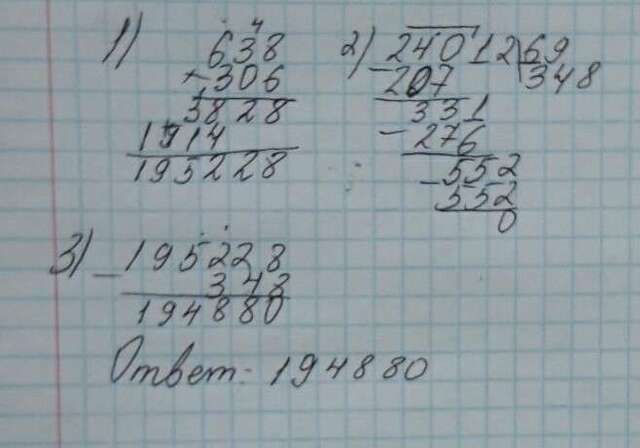 1) 638
×306
3828
1914
195228
2) 24012 69
-207 348
331
-276
552
-552
0
3) 195228
- 348
194880
Ответ: 194880